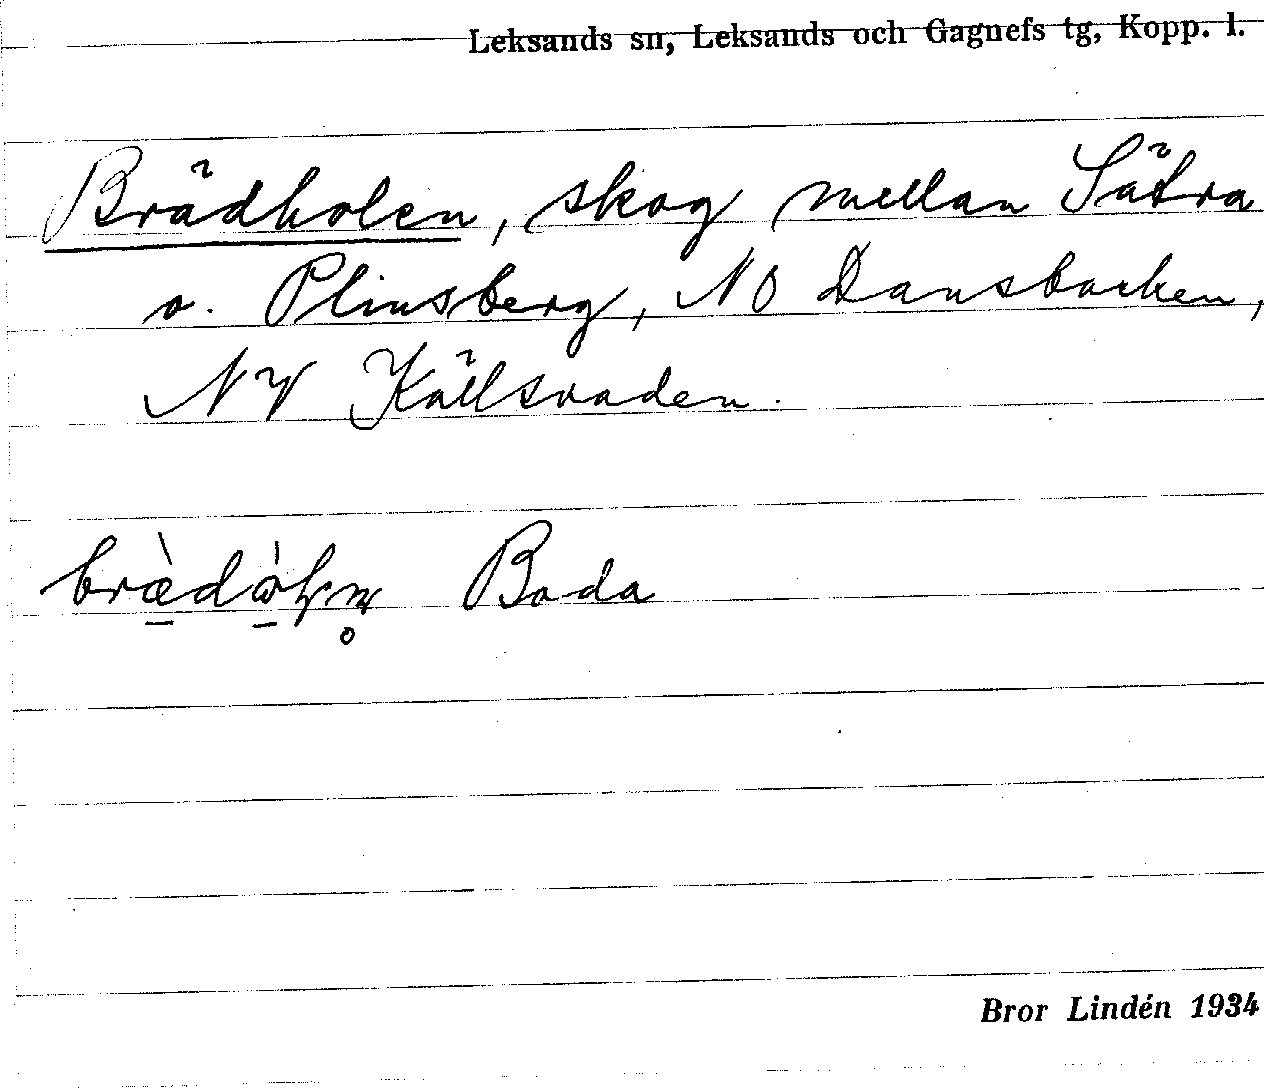 Leksands sn, Leksands och Gagnefs tg, Kopp. l.
Brädholen, skog mellan Sätra
o. Plinsberg, NO Dansbacken,
NV Källsvaden.
Boda
Bror Lindén 1934